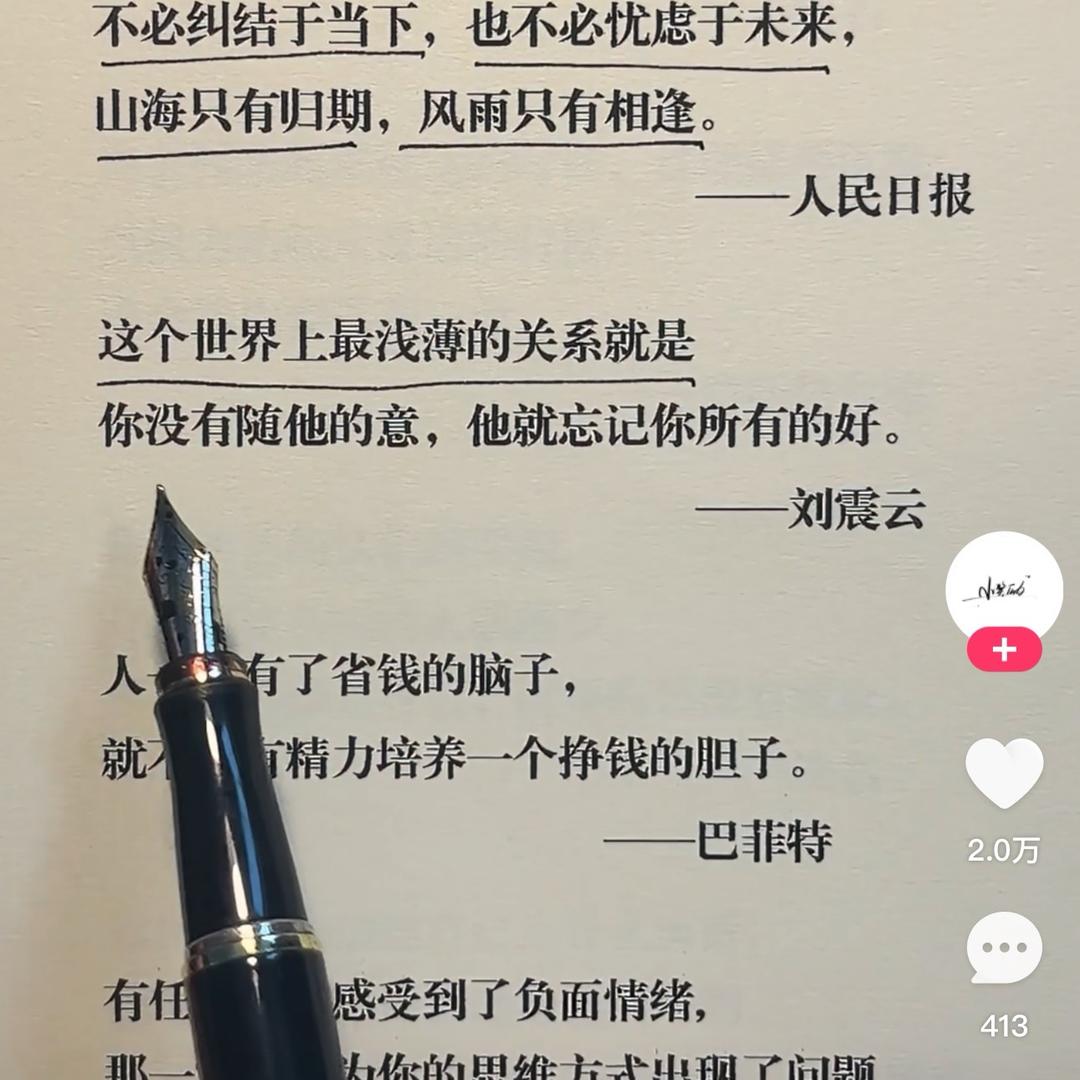 不必纠结于当下，也不必忧虑于未来，
山海只有归期，风雨只有相逢。
——人民日报
这个世界上最浅薄的关系就是
你没有随他的意，他就忘记你所有的好。
——刘震云
人 有了省钱的脑子，
就 有精力培养一个挣钱的胆子。
——巴菲特
有任 感受到了负面情绪，
那一 为你的思维方式出现了问题
2.0万
413